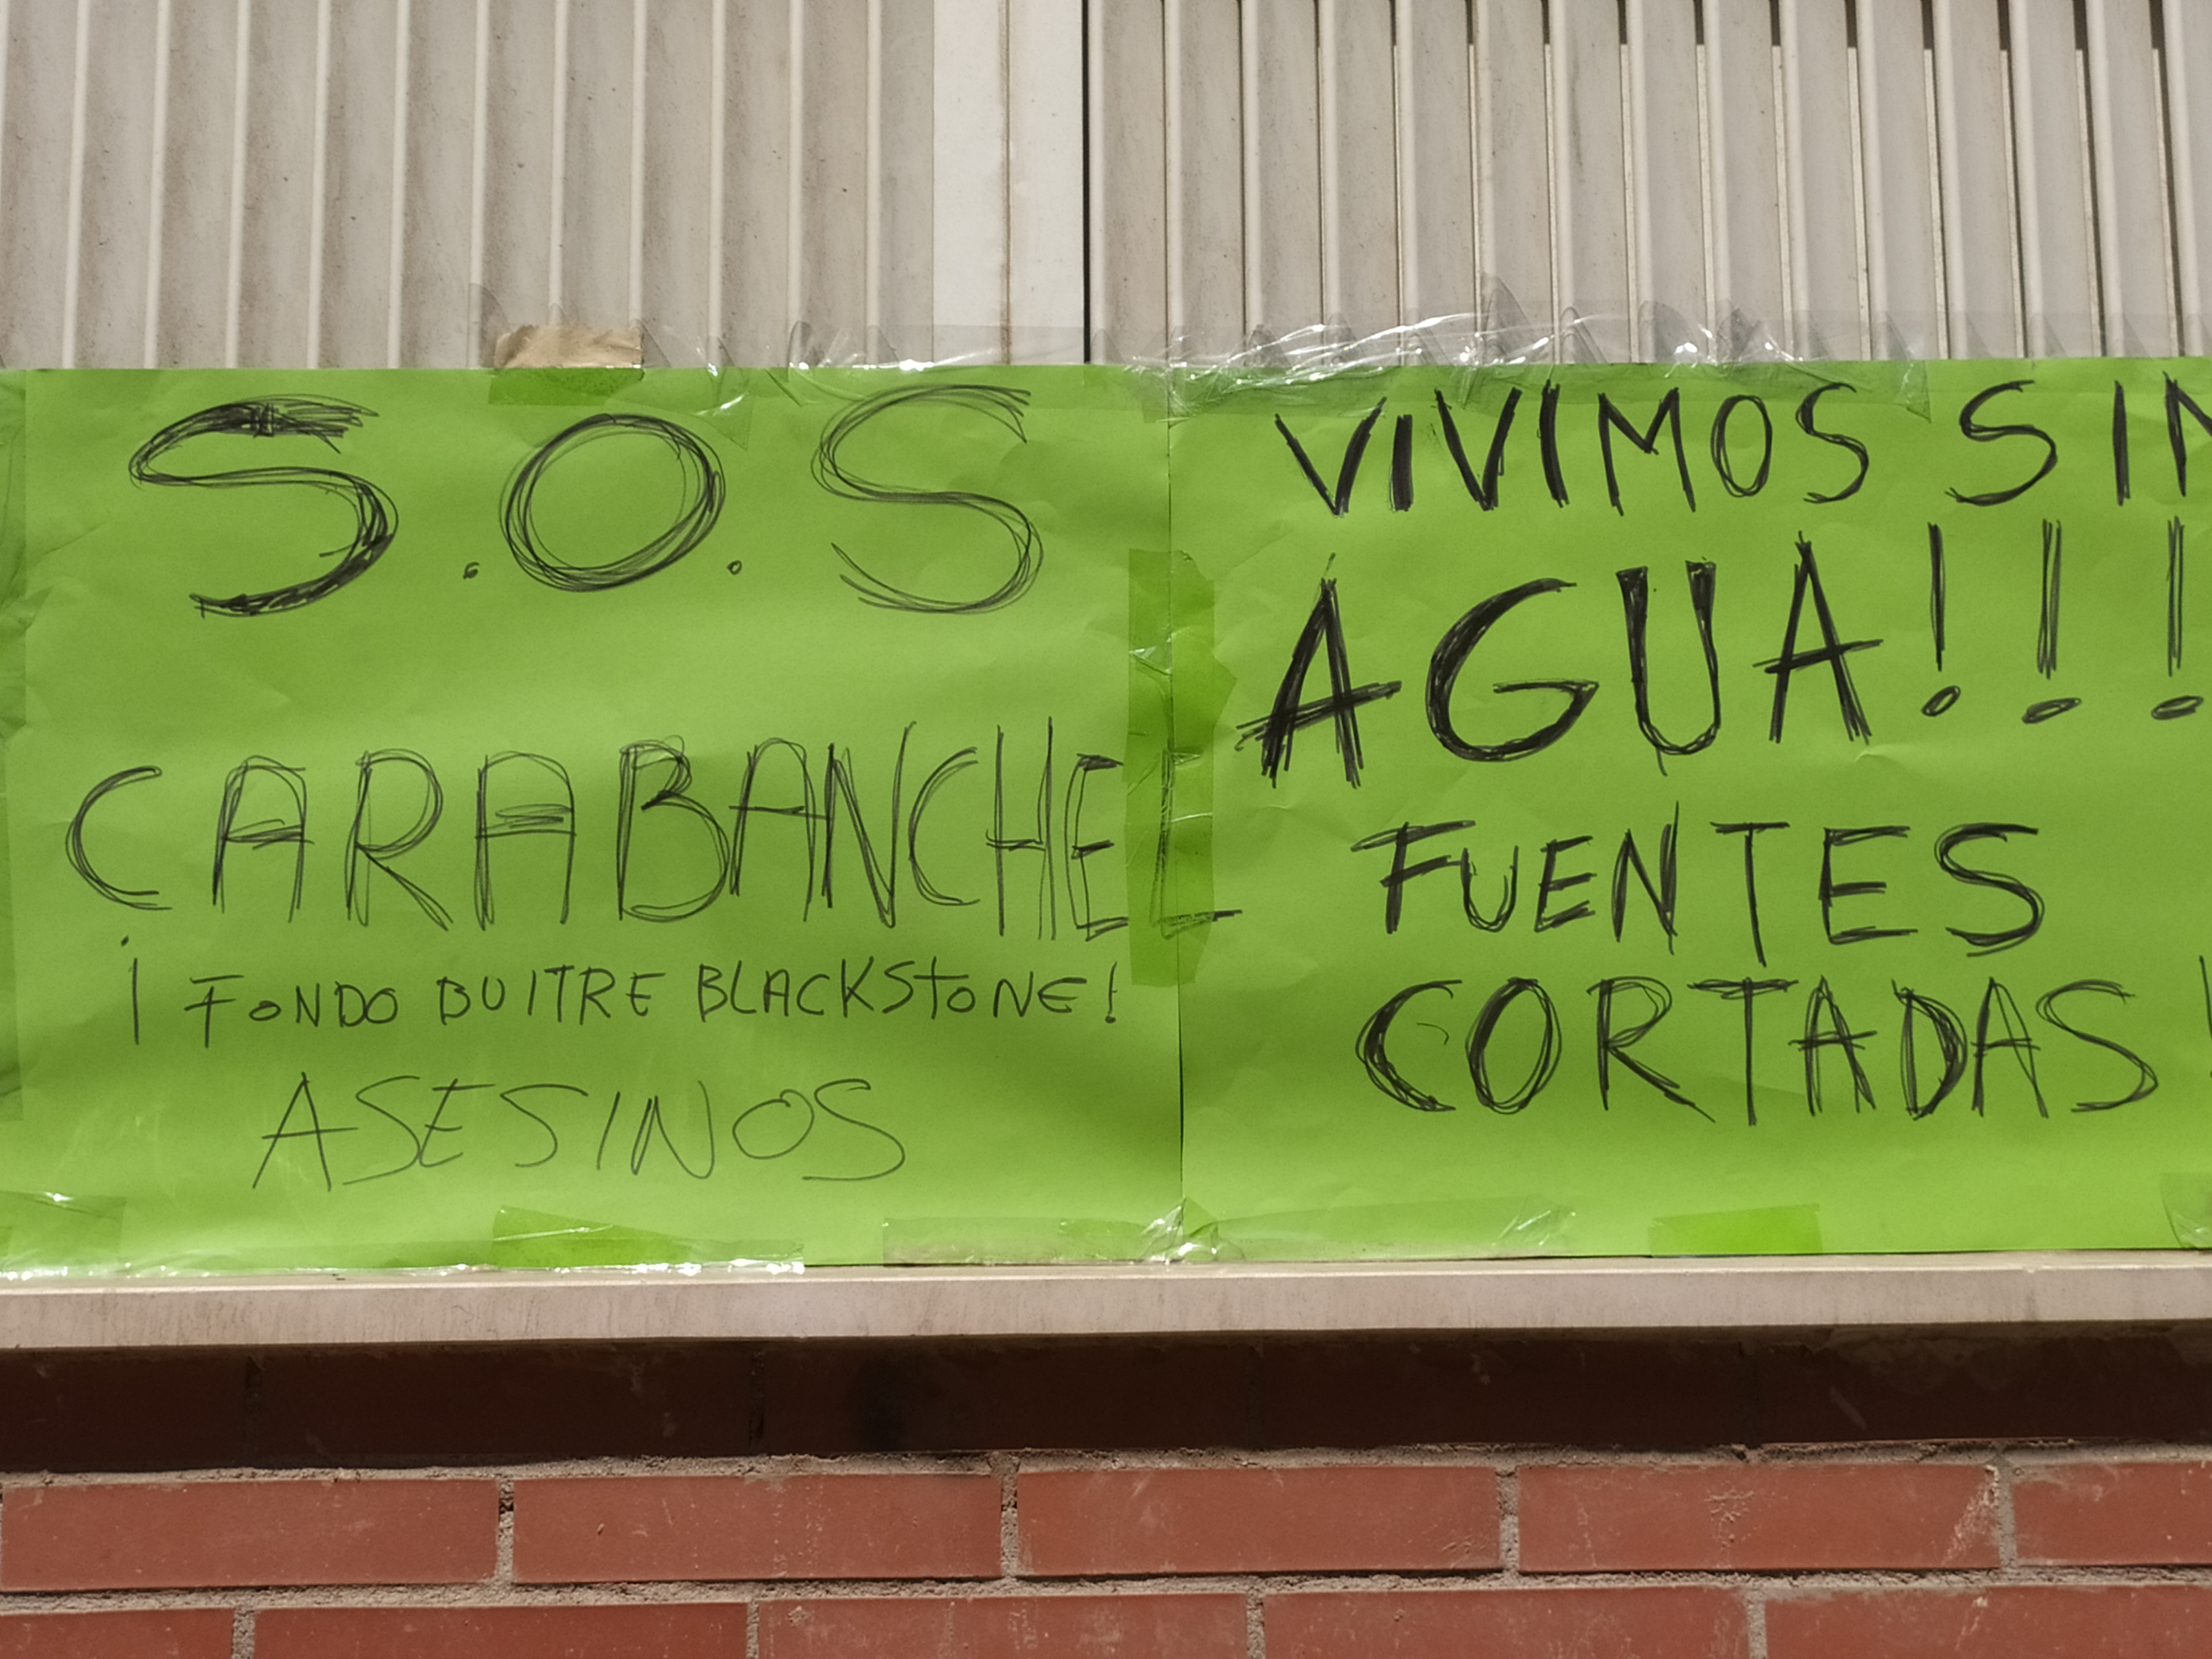 S.O.S
CARABANCHEL
¡FONDO BUITRE BLACKSTONE!
ASESINOS
VIVIMOS SIN
AGUA!!!
FUENTES
CORTADAS!